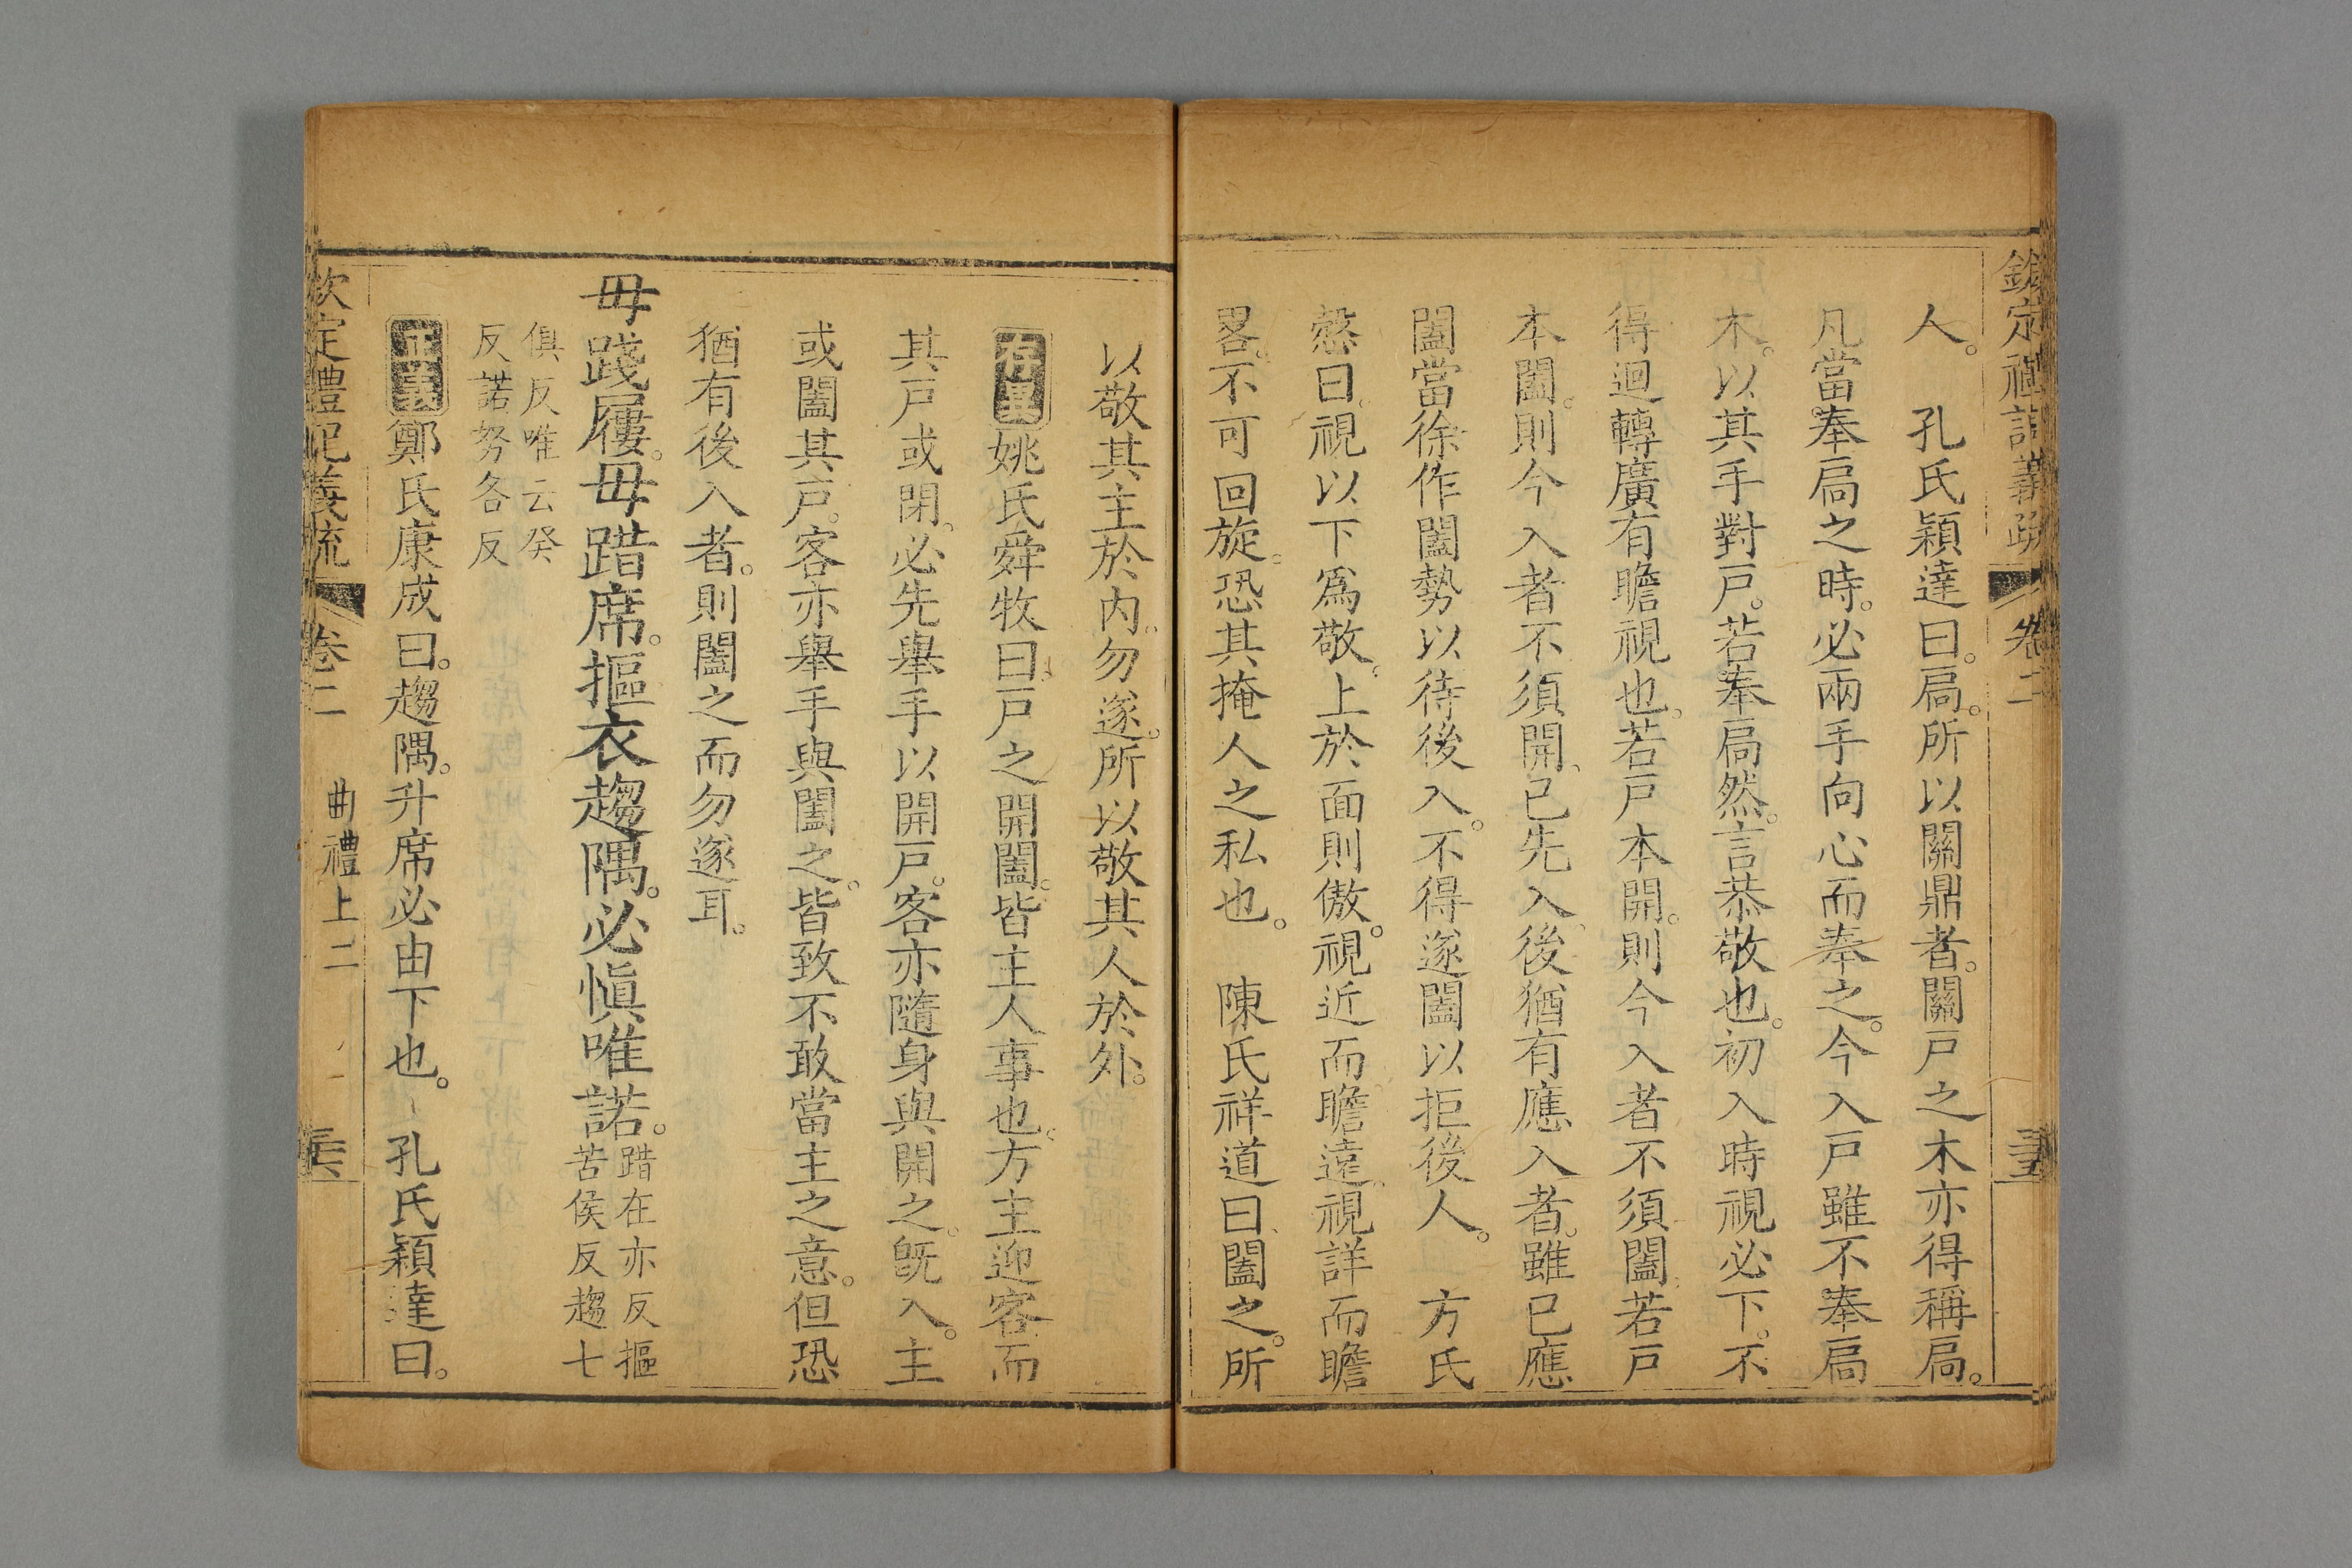 欽定禮記義疏 卷二
人。 孔氏穎達曰。扃。所以關鼎者。關戸之木亦得稱扃。
凡當奉扃之時。必兩手向心而奉之。今入戸雖不奉扃
木。以其手對戸。若奉扃然。言恭敬也。初入時視必下。不
得迴轉廣有瞻視也。若戸本開。則今入者不須闔。若戸
本闔。則今入者不須開、已先入、後猶有應入者。雖已應
闔當徐作闔勢以待後入。不得遂闔以拒後人。 方氏
慤曰。視以下爲敬。上於面則傲。視近而瞻遠。視詳而瞻
畧。不可回旋。恐其掩人之私也。 陳氏祥道曰、闔之。所
以敬其主於内。勿遂。所以敬其人於外。
存異姚氏舜牧曰。戸之開闔。皆主人事也。方主迎客而
其戸或閉。必先舉手以開戸。客亦隨身與開之。旣入。主
或闔其戸。客亦舉手與闔之。皆致不敢當主之意。但恐
猶有後入者。則闔之而勿遂耳。
毋踐屨。毋踖席。摳衣趨隅。必愼唯諾。踖在亦反摳
苦侯反趨七
俱反唯云癸
反諾努各反
正義鄭氏康成曰。趨隅。升席必由下也。 孔氏穎達曰。
欽定禮記義疏 卷二 曲禮上二